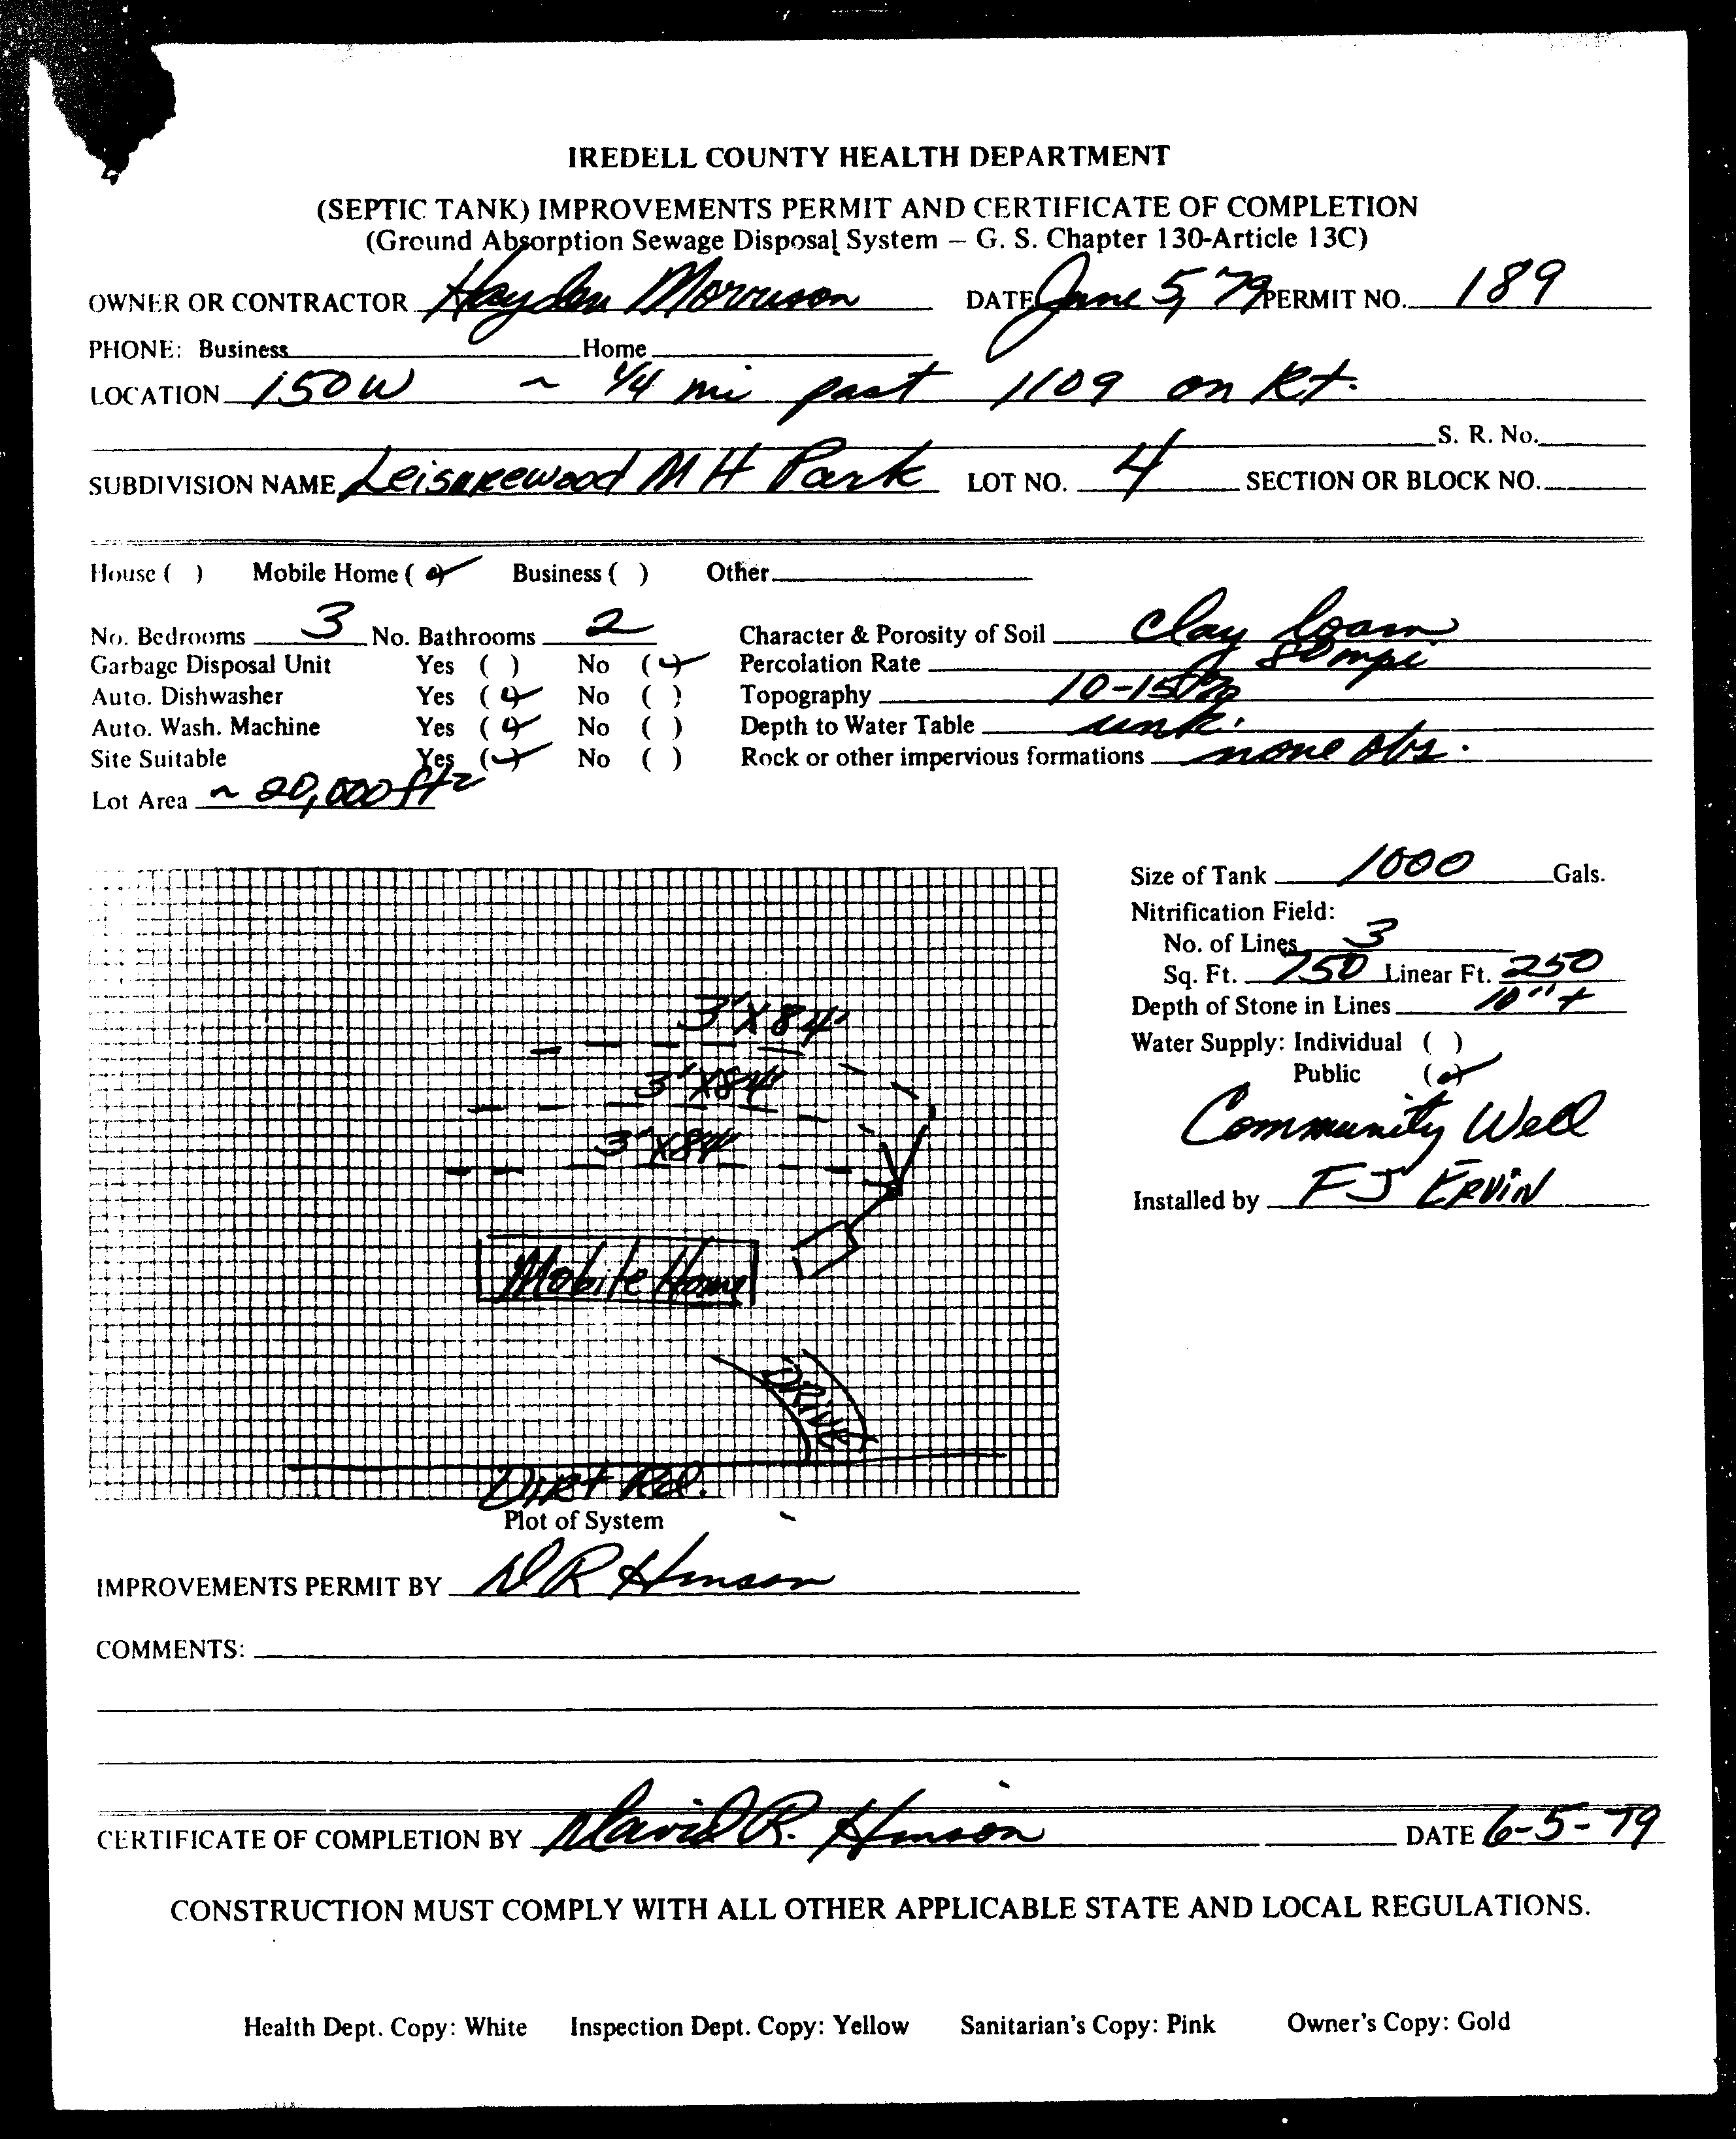 IREDELL COUNTY HEALTH DEPARTMENT
(SEPTIC TANK) IMPROVEMENTS PERMIT AND CERTIFICATE OF COMPLETION
(Ground Absorption Sewage Disposal System – G. S. Chapter 130-Article 13C)
OWNER OR CONTRACTOR Hayden Morrison DATE June 5, 79 PERMIT NO. 189
PHONE: Business Home
LOCATION 150W ~ 1/4 mi past 1109 on Rt.
S. R. No.
SUBDIVISION NAME Leisurewood M H Park LOT NO. 4 SECTION OR BLOCK NO.
House ( ) Mobile Home ( ✓ ) Business ( ) Other
No. Bedrooms 3 No. Bathrooms 2 Character & Porosity of Soil Clay loam
Garbage Disposal Unit Yes ( ) No ( ✓ ) Percolation Rate 80 mpi
Auto. Dishwasher Yes ( ✓ ) No ( ) Topography 10-15%
Auto. Wash. Machine Yes ( ✓ ) No ( ) Depth to Water Table unk.
Site Suitable Yes ( ✓ ) No ( ) Rock or other impervious formations none obs.
Lot Area ~ 20,000 ft2
Size of Tank 1000 Gals.
Nitrification Field:
No. of Lines 3
Sq. Ft. 750 Linear Ft. 250
Depth of Stone in Lines 10"+
Water Supply: Individual ( )
Public ( ✓ )
Community Well
Installed by FJ ERVIN
3'X84'
3'X84'
3'X84'
Mobile Home
DRIVE
Dirt Rd.
Plot of System
IMPROVEMENTS PERMIT BY D R Hinson
COMMENTS:
CERTIFICATE OF COMPLETION BY David R. Hinson DATE 6-5-79
CONSTRUCTION MUST COMPLY WITH ALL OTHER APPLICABLE STATE AND LOCAL REGULATIONS.
Health Dept. Copy: White Inspection Dept. Copy: Yellow Sanitarian's Copy: Pink Owner's Copy: Gold